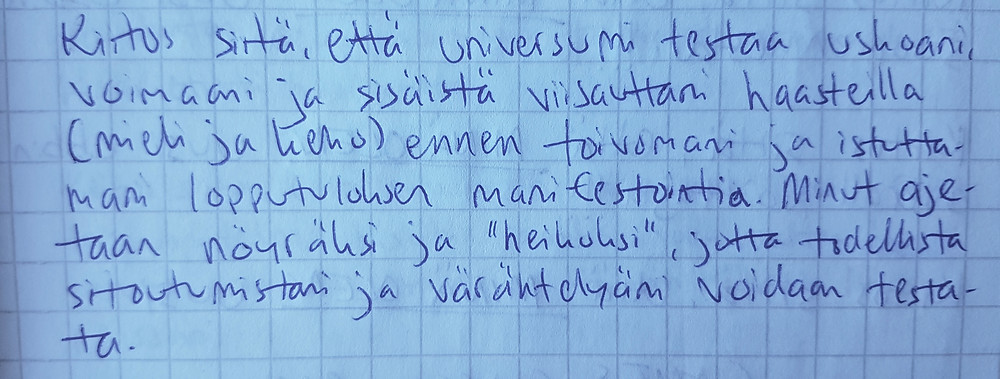 Kiitos siitä, että universumi testaa uskoani,
voimaani ja sisäistä viisauttani haasteilla
(mieli ja keho) ennen toivomani ja istutta-
mani lopputuloksen manifestointia. Minut aje-
taan nöyräksi ja "heikoksi", jotta todellista
sitoutumistani ja värähtelyäni voidaan testa-
ta.